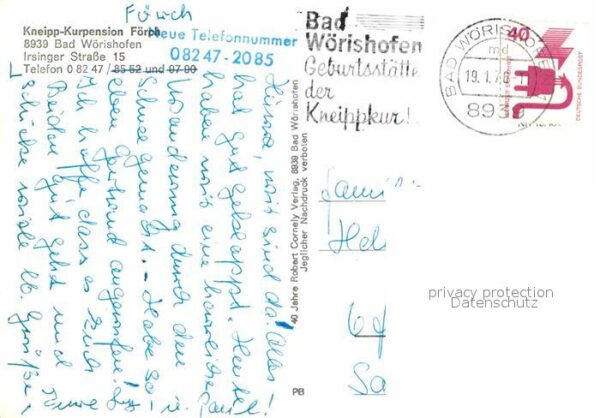 Förch
Kneipp-Kurpension Förch
8939 Bad Wörishofen
Irsinger Straße 15
Telefon 0 82 47 / 85 52 und 07 90
Neue Telefonnummer
08247-2085
Bad
Wörishofen
Geburtsstätte
der
Kneippkur!
BAD WÖRISHOFEN
md
19.1.7
8939
40
DEUTSCHE BUNDESPOST
wir sind da. Alles
hat gut geklappt. Heute
haben wir eine herrliche
Wanderung durch den
gemacht. - Habe so
eben angerufen.
Ich hoffe, dass es Euch
Beiden gut geht und
schicke viele lb. Grüße,
40 Jahre Robert Cornely Verlag, 8939 Bad Wörishofen
Jeglicher Nachdruck verboten
PB
Fami
privacy protection
Datenschutz